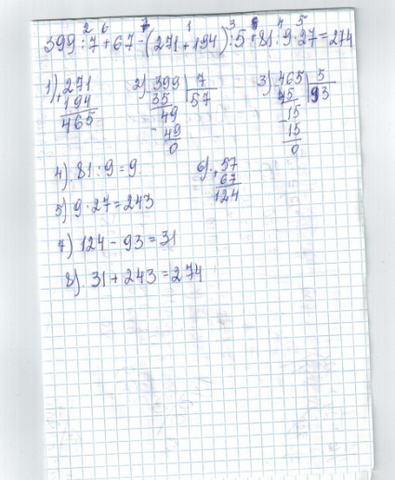 2 6 7 1 3 8 4 5
399:7+67-(271+194):5+81:9·27=274
1) 271 2) 399 | 7 3) 465 | 5
+194 35 | 57 45 | 93
465 49 15
- 49 - 15
0 0
4) 81:9=9 6) 57
+67
5) 9·27=243 124
7) 124-93=31
8) 31+243=274